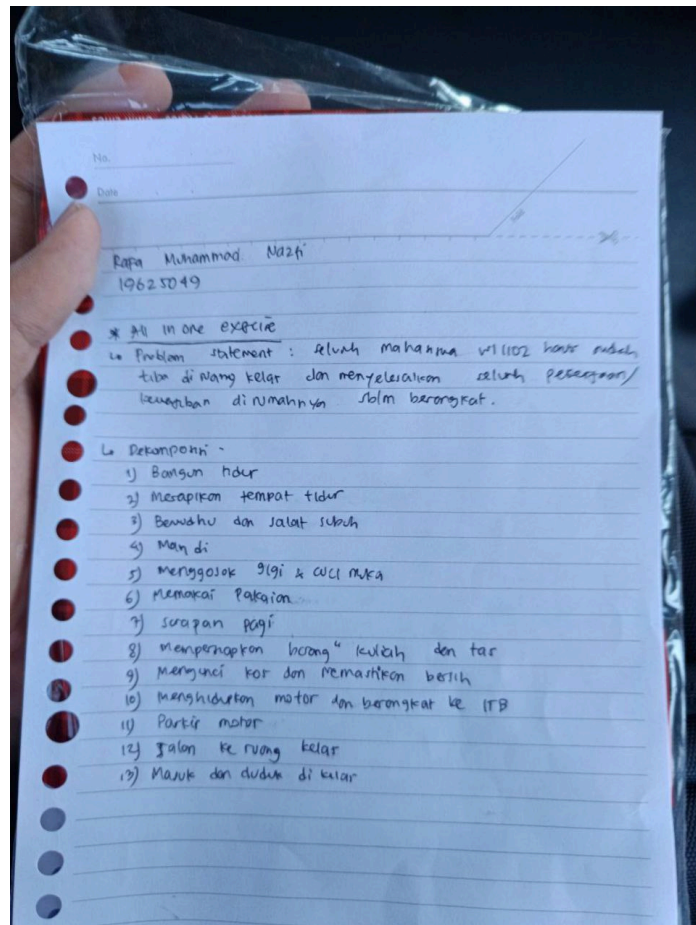 No.
Date
Rafa Muhammad Nazfi
19625049
* All in one exercise
↳ Problem statement : seluruh mahasiswa WI1102 harus sudah
tiba di ruang kelas dan menyelesaikan seluruh pekerjaan/
kewajiban di rumahnya sblm berangkat.
↳ Dekomposisi -
1) Bangun tidur
2) Merapikan tempat tidur
3) Berwudhu dan salat subuh
4) Mandi
5) Menggosok gigi & cuci muka
6) Memakai Pakaian
7) Sarapan pagi
8) Mempersiapkan barang" kuliah dan tas
9) Mengunci kos dan memastikan bersih
10) Menghidupkan motor dan berangkat ke ITB
11) Parkir motor
12) Jalan ke ruang kelas
13) Masuk dan duduk di kelas